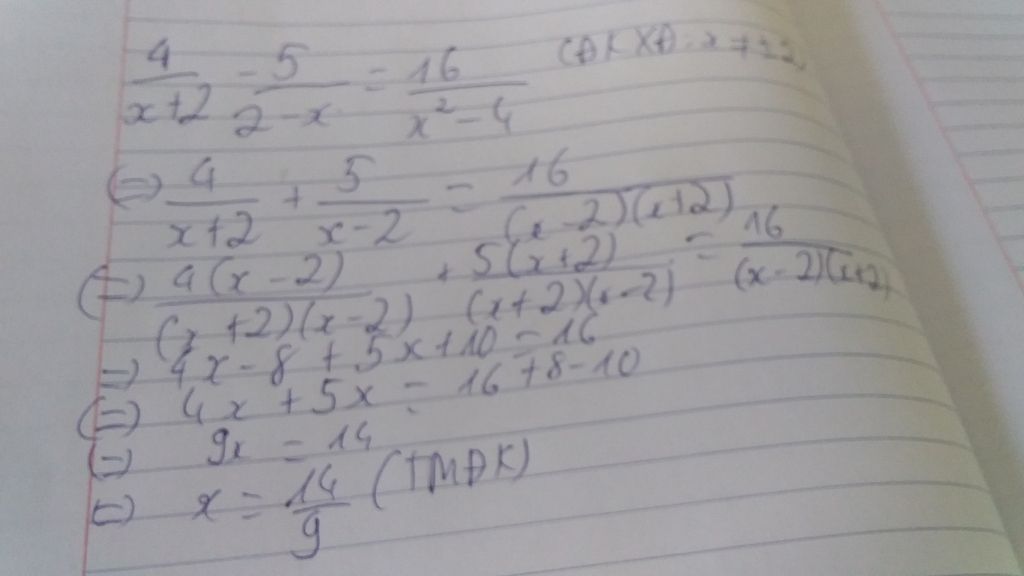 4/(x+2) - 5/(2-x) = 16/(x²-4) (ĐKXĐ: x ≠ ±2)
⇔ 4/(x+2) + 5/(x-2) = 16/((x-2)(x+2))
⇔ 4(x-2)/((x+2)(x-2)) + 5(x+2)/((x+2)(x-2)) = 16/((x-2)(x+2))
⇒ 4x - 8 + 5x + 10 = 16
⇔ 4x + 5x = 16 + 8 - 10
⇔ 9x = 14
⇔ x = 14/9 (TMĐK)